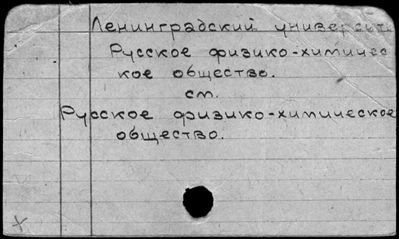 Ленинградский университ
Русское физико-химичес
кое общество.
см.
Русское физико-химическое
общество.